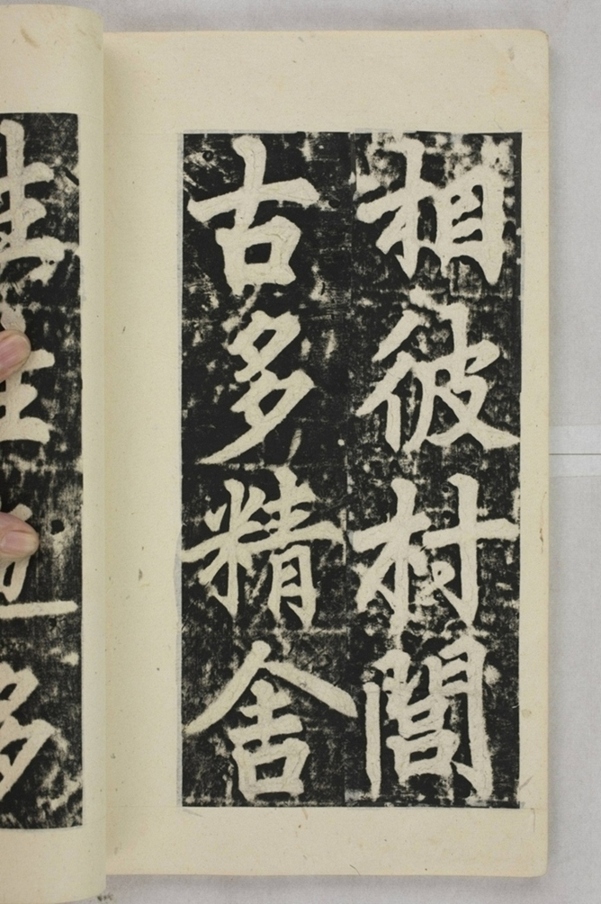 相彼村閭
古多精舍